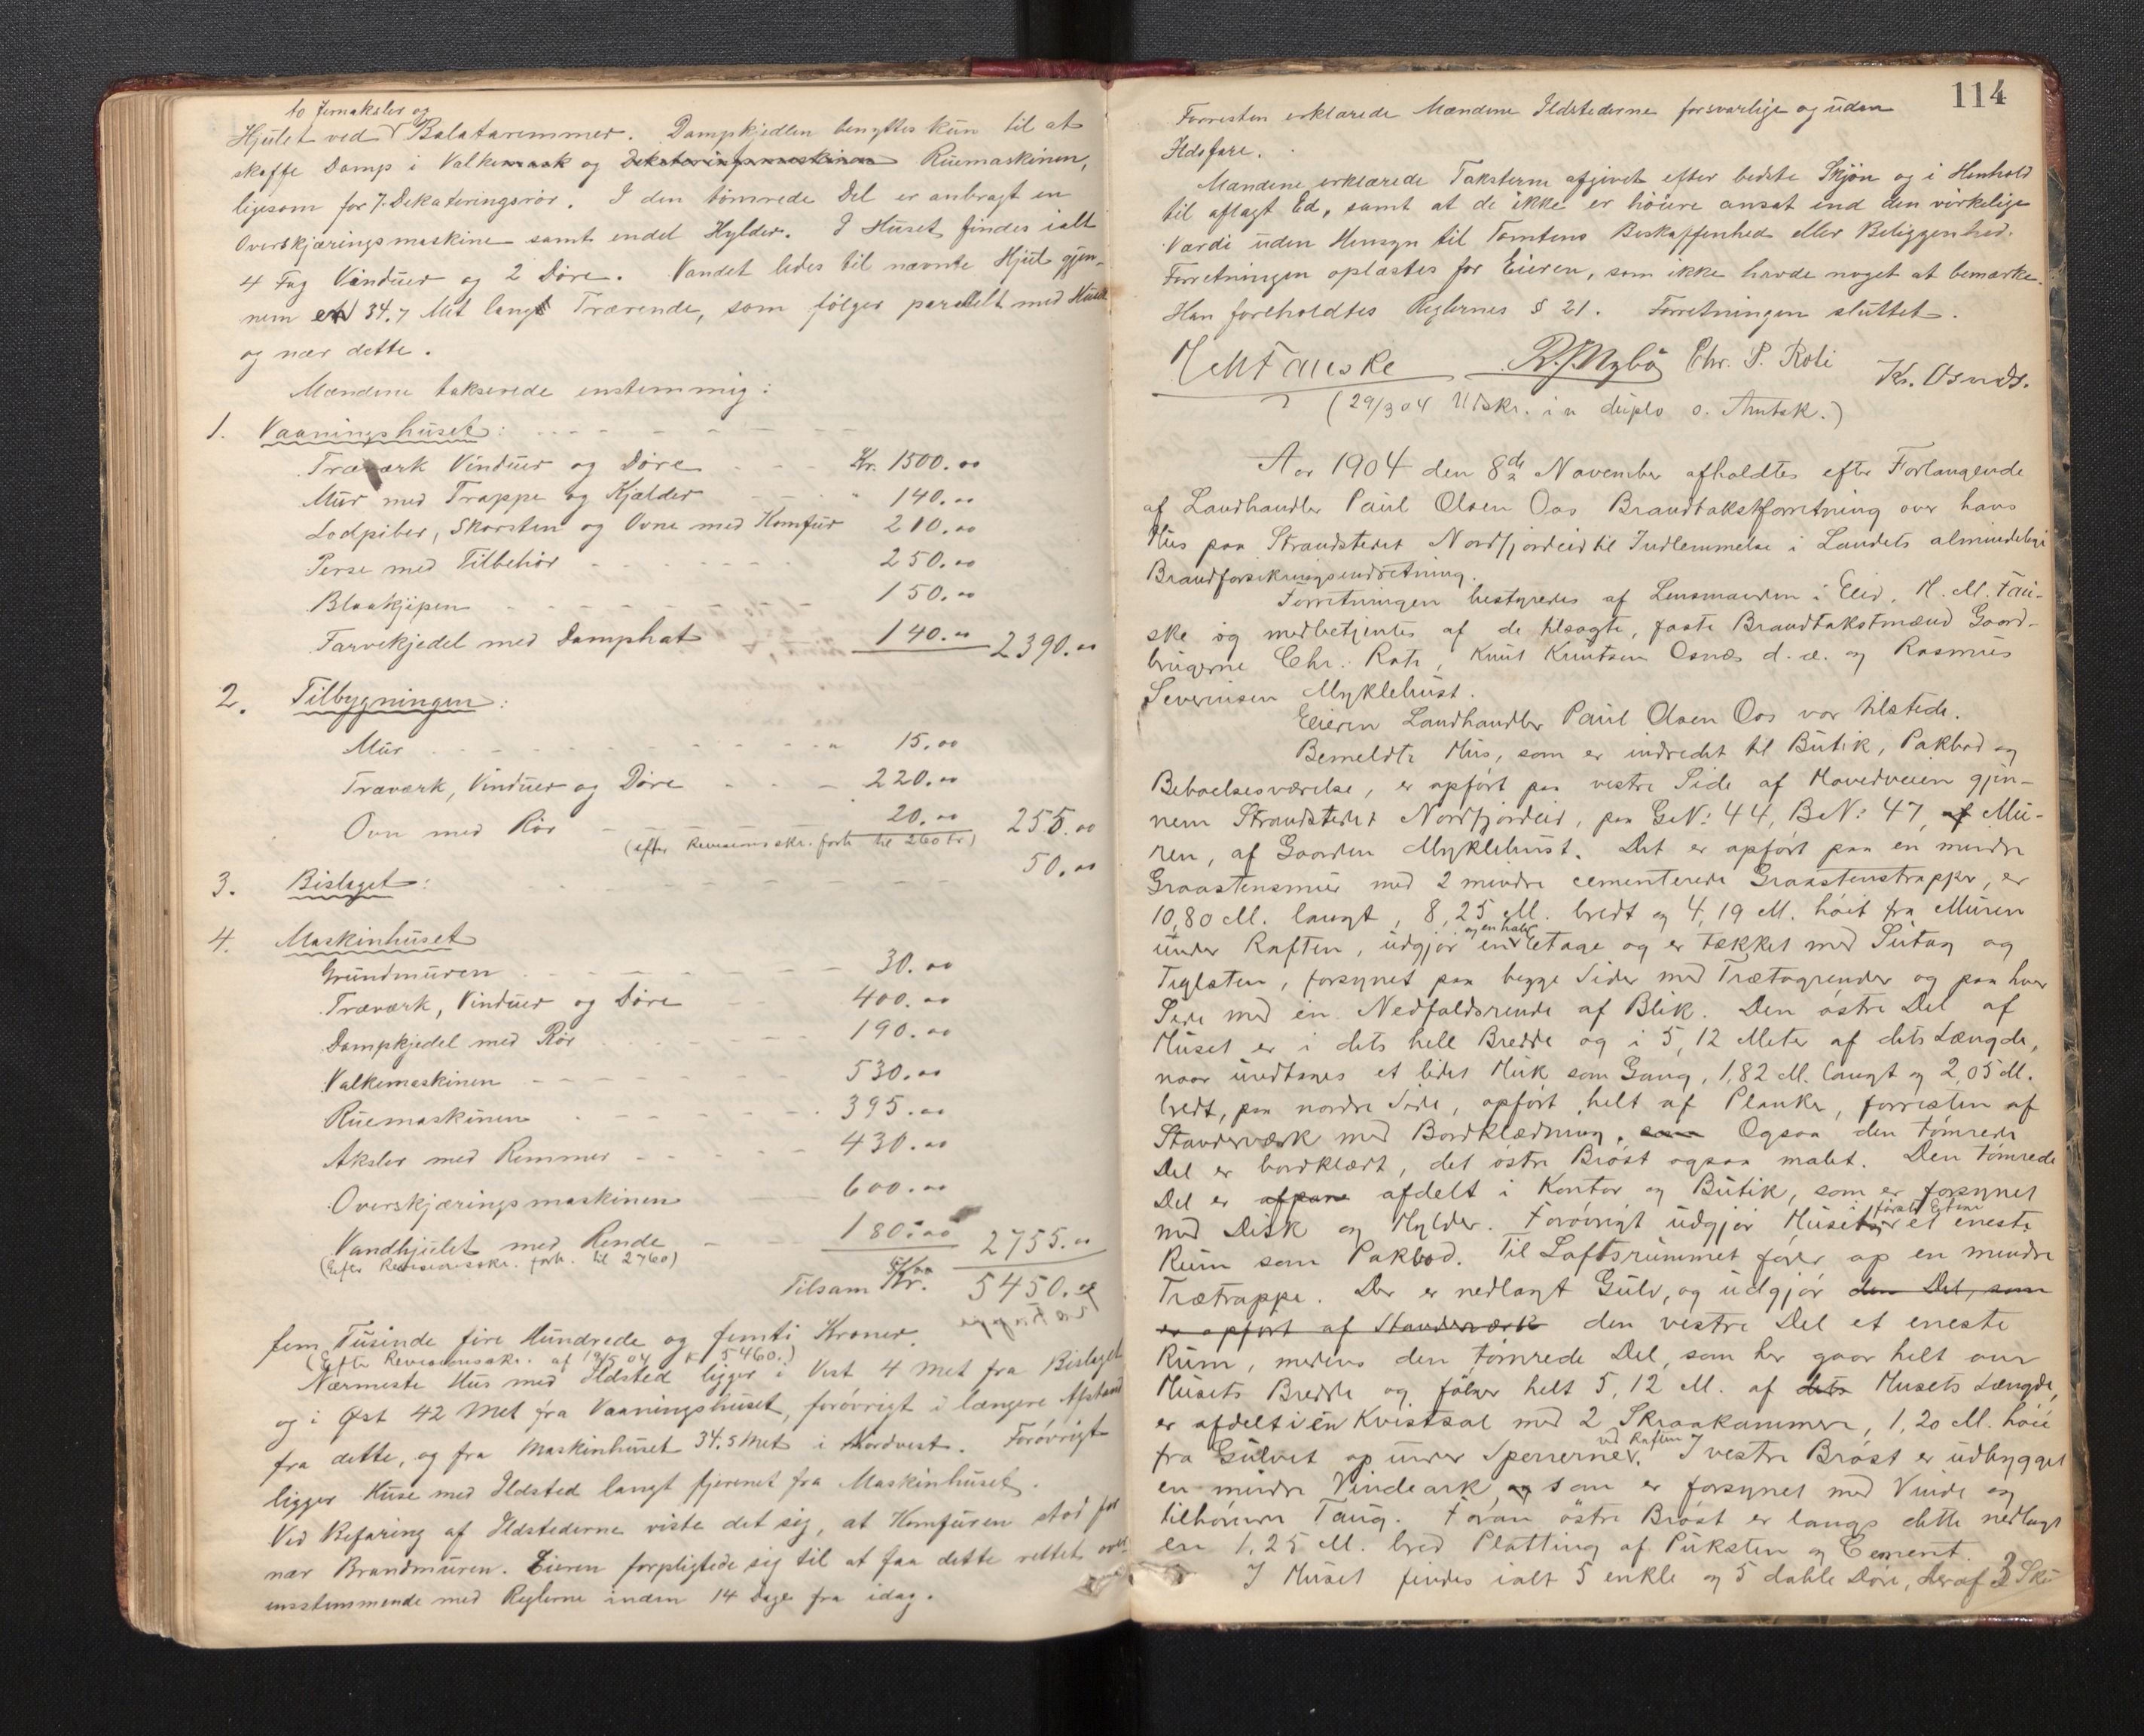 to Jernaksler og
Hjulet ved Balataremmer. Dampkjedlen benyttes kun til at
skaffe Damp i Valkemask og Dekateringsmaskinen Ruemaskinen,
ligesom for 7. Dekateringsrør. I den tømrede Del er anbragt en
Overskjæringsmaskine samt endel Hylder. I Huset findes ialt
4 Fag Vinduer og 2 Døre. Vandet ledes til nævnte Hjul gjen-
nem en 34.7 Met lang Trærende, som følger parallelt med Huset
og nær dette.
Mændene takserede enstemmig:
1. Vaaningshuset:
Træværk Vinduer og Døre Kr. 1500.00
Mur med Trappe og Kjælder " 140.00
Lodpiber, Skorsten og Ovne med Komfur 210.00
Perse med Tilbehør 250.00
Blaakjipen 150.00
Farvekjedel med Damphat 140.00 2390.00
2. Tilbygningen:
Mur " 15.00
Træværk, Vinduer og Døre 220.00
Ovn med Rør 20.00 255.00
(efter Revisionsskr. forh. til 260 kr)
3. Bislaget: 50.00
4. Maskinhuset
Grundmuren 30.00
Træværk, Vinduer og Døre 400.00
Dampkjedel med Rør 190.00
Valkemaskinen 530.00
Ruemaskinen 395.00
Aksler med Remmer 430.00
Overskjæringsmaskinen 600.00
Vandhjulet med Rende 180.00 2755.00
(Efter Revisionsskr. forh. til 2760)
Tilsam Kr. 5450.00
fem Tusinde fire Hundrede og femti Kroner.
(Efter Revisionsskr. af 19/5 04 kr 5460.)
Nærmeste Hus med Ildsted ligger i Vest 4 Met fra Bislaget
og i Øst 42 Met fra Vaaningshuset, forøvrigt i længere Afstand
fra dette, og fra Maskinhuset 34.5 Met i Nordvest. Forøvrigt
ligger Huse med Ildsted langt fjernet fra Maskinhuset.
Ved Befaring af Ildstederne viste det sig, at Komfuren stod for
nær Brandmuren. Eieren forpligtede sig til at faa dette rettet over-
ensstemmende med Reglerne inden 14 Dage fra idag.
114
Forresten erklærede Mændene Ildstederne forsvarlige og uden
Ildsfare.
Mændene erklærede Taksterne afgivet efter bedste Skjøn og i Henhold
til aflagt Ed, samt at de ikke er høiere ansat end den virkelige
Værdi uden Hensyn til Tomtens Beskaffenhed eller Beliggenhed.
Forretningen oplæstes for Eieren, som ikke havde noget at bemærke.
Han foreholdtes Reglernes § 21. Forretningen sluttet.
H M Fauske R. J. Myklb Chr. P. Roti Kr. Osnæs.
(29/3 04 Udskr. i duplo o. Amtsk.)
Aar 1904 den 8de November afholdtes efter Forlangende
af Landhandler Paul Olsen Oos Brandtakstforretning over hans
Hus paa Strandstedet Nordfjordeid til Indlemmelse i Landets almindelige
Brandforsikringsindretning.
Forretningen bestyredes af Lensmanden i Eid, H. M. Fau-
ske og medbetjentes af de tilsagte, faste Brandtakstmænd Gaard-
brugerne Chr. Roti, Knut Knutsen Osnæs d. æ. og Rasmus
Severinsen Myklebust.
Eieren Landhandler Paul Olsen Oos var tilstede.
Bemeldte Hus, som er indredet til Butik, Pakbod og
Beboelsesværelse, er opført paa vestre Side af Hovedveien gjen-
nem Strandstedet Nordfjordeid, paa G.N: 44, B.N: 47, af Mu-
ren, af Gaarden Myklebust. Det er opført paa en mindre
Graastensmur med 2 mindre cementerede Graastenstrapper, er
10,80 M. langt, 8,25 M. bredt og 4,19 M. høit fra Muren
under Raften, udgjør en og en halv Etage og er tækket med Sutag og
Teglsten, forsynet paa begge Sider med Trætagrender og paa hver
Side med én Nedfaldsrende af Blik. Den østre Del af
Huset er i dets hele Bredde og i 5,12 Meter af dets Længde,
naar undtages et lidet Huk som Gang, 1,82 M. langt og 2,05 M.
bredt, paa nordre Side, opført helt af Planker, forresten af
Standerværk med Bordklædning. som Ogsaa den tømrede
Del er bordklædt, det østre Brøst ogsaa malet. Den tømrede
Del er afpane afdelt i Kontor og Butik, som er forsynet
med Disk og Hylder. Forøvrigt udgjør Huset i første Etage et eneste
Rum som Pakbod. Til Loftsrummet fører op en mindre
Trætrappe. Der er nedlagt Gulv, og udgjør den Del, som
er opført af Standerværk den vestre Del et eneste
Rum, medens den tømrede Del, som her gaar helt over
Husets Bredde og følger helt 5,12 M. af dets Husets Længde,
er afdelt i én Kvistsal med 2 Skraakammere, 1,20 M. høie
fra Gulvet op under Sperrerne ved Raften. I vestre Brøst er udbygget
en mindre Vindeark, og som er forsynet med Vinde og
tilhørende Taug. Foran østre Brøst er langs dette nedlagt
en 1,25 M. bred Platting af Puksten og Cement.
I Huset findes ialt 5 enkle og 5 doble Døre, deraf 3 Sky-